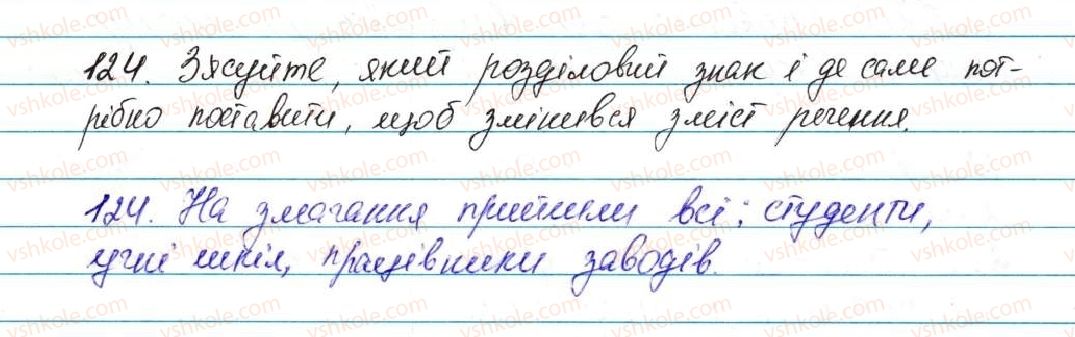 124. Зясуйте, який розділовий знак і де саме пот-
рібно поставити, щоб змінився зміст речення.
124. На змагання прийшли всі: студенти,
учні шкіл, працівники заводів.